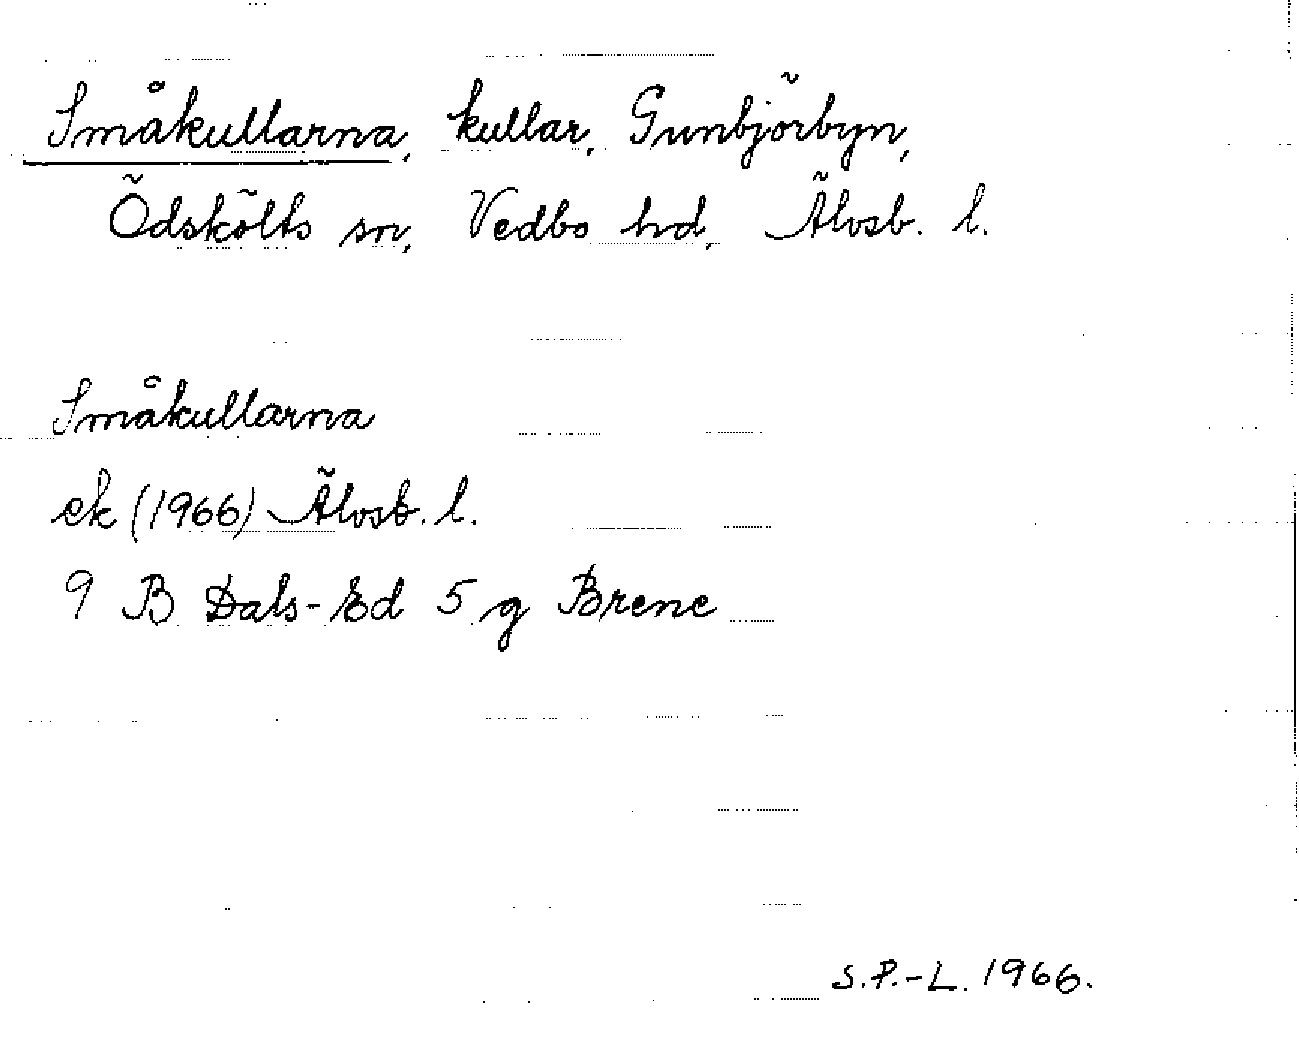 Småkullarna, kullar, Gunbjörbyn,
Ödskölts sn, Vedbo hd, Älvsb. l.
Småkullarna
ek (1966) Älvsb. l.
9 B Dals-Ed 5 g Brene
S.P.-L. 1966.